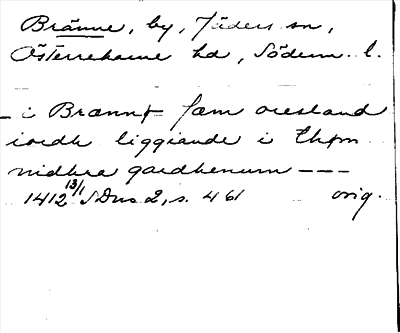 Bränne, by, Jäders sn,
Österrekarne hd, Söderm. l.
– i Brænnø fæm øresland
iordh liggiande i thøm
nidhra gardhenum – – –
1412 13/1 SDns 2, s. 461 orig.